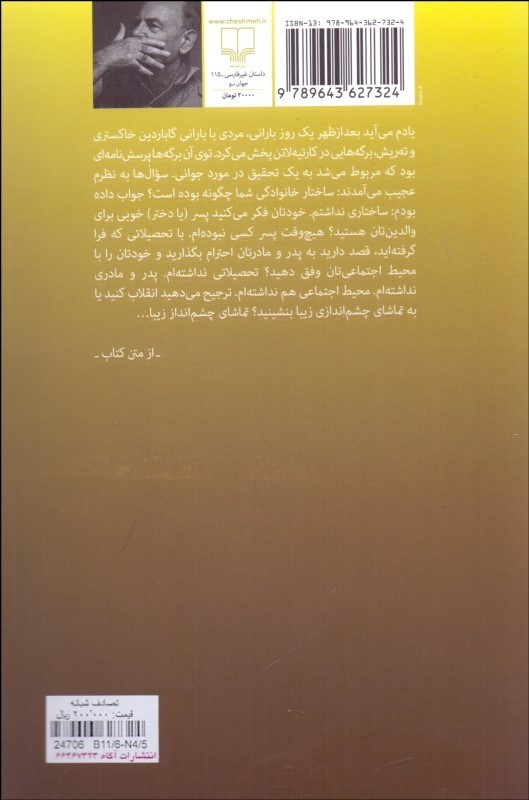 www.cheshmeh.ir
داستان غیرفارسی ـ ۱۱۵
جهان نو
۲۰۰۰۰ تومان
ISBN-13: 978-964-362-732-4
9 789643 627324
یادم می‌آید بعدازظهر یک روز بارانی، مردی با بارانی گاباردین خاکستری
و ته‌ریش، برگه‌هایی در کارتیه‌لاتن پخش می‌کرد. توی آن برگه‌ها پرسش‌نامه‌ای
بود که مربوط می‌شد به یک تحقیق در مورد جوانی. سؤال‌ها به نظرم
عجیب می‌آمدند: ساختار خانوادگی شما چگونه بوده است؟ جواب داده
بودم: ساختاری نداشتم. خودتان فکر می‌کنید پسر (یا دختر) خوبی برای
والدین‌تان هستید؟ هیچ‌وقت پسر کسی نبوده‌ام. با تحصیلاتی که فرا
گرفته‌اید، قصد دارید به پدر و مادرتان احترام بگذارید و خودتان را با
محیط اجتماعی‌تان وفق دهید؟ تحصیلاتی نداشته‌ام. پدر و مادری
نداشته‌ام. محیط اجتماعی هم نداشته‌ام. ترجیح می‌دهید انقلاب کنید یا
به تماشای چشم‌اندازی زیبا بنشینید؟ تماشای چشم‌انداز زیبا...
ـ از متن کتاب ـ
تصادف شبانه
قیمت: ۲۰۰٬۰۰۰ ریال
24706 B11/6-N4/5
انتشارات آگاه ۶۶۴۶۷۳۲۳